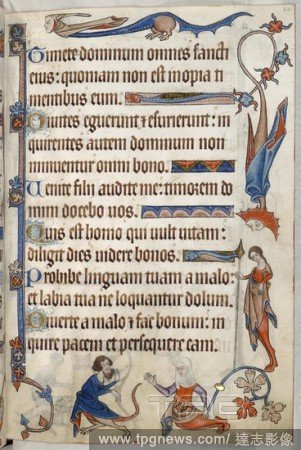 Timete dominum omnes sancti
eius: quoniam non est inopia ti
mentibus eum.
Diuites eguerunt ⁊ esurierunt: in
quirentes autem dominum non
minuentur omni bono.
Uenite filii audite me: timorem do
mini docebo uos.
Quis est homo qui uult uitam:
diligit dies uidere bonos.
Prohibe linguam tuam a malo:
et labia tua ne loquantur dolum.
Diuerte a malo ⁊ fac bonum: in
quire pacem et persequere eam.
TPG
www.tpgnews.com/ 達志影像